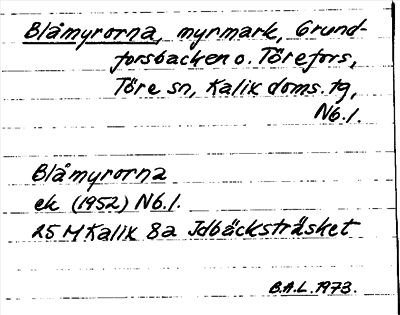 Blåmyrorna, myrmark, Grund-
forsbacken o. Törefors,
Töre sn, Kalix doms. tg,
Nb.l.
Blåmyrorna
ek (1952) Nb.l.
25 M Kalix 8a Idbäcksträsket
B.A.L. 1973.